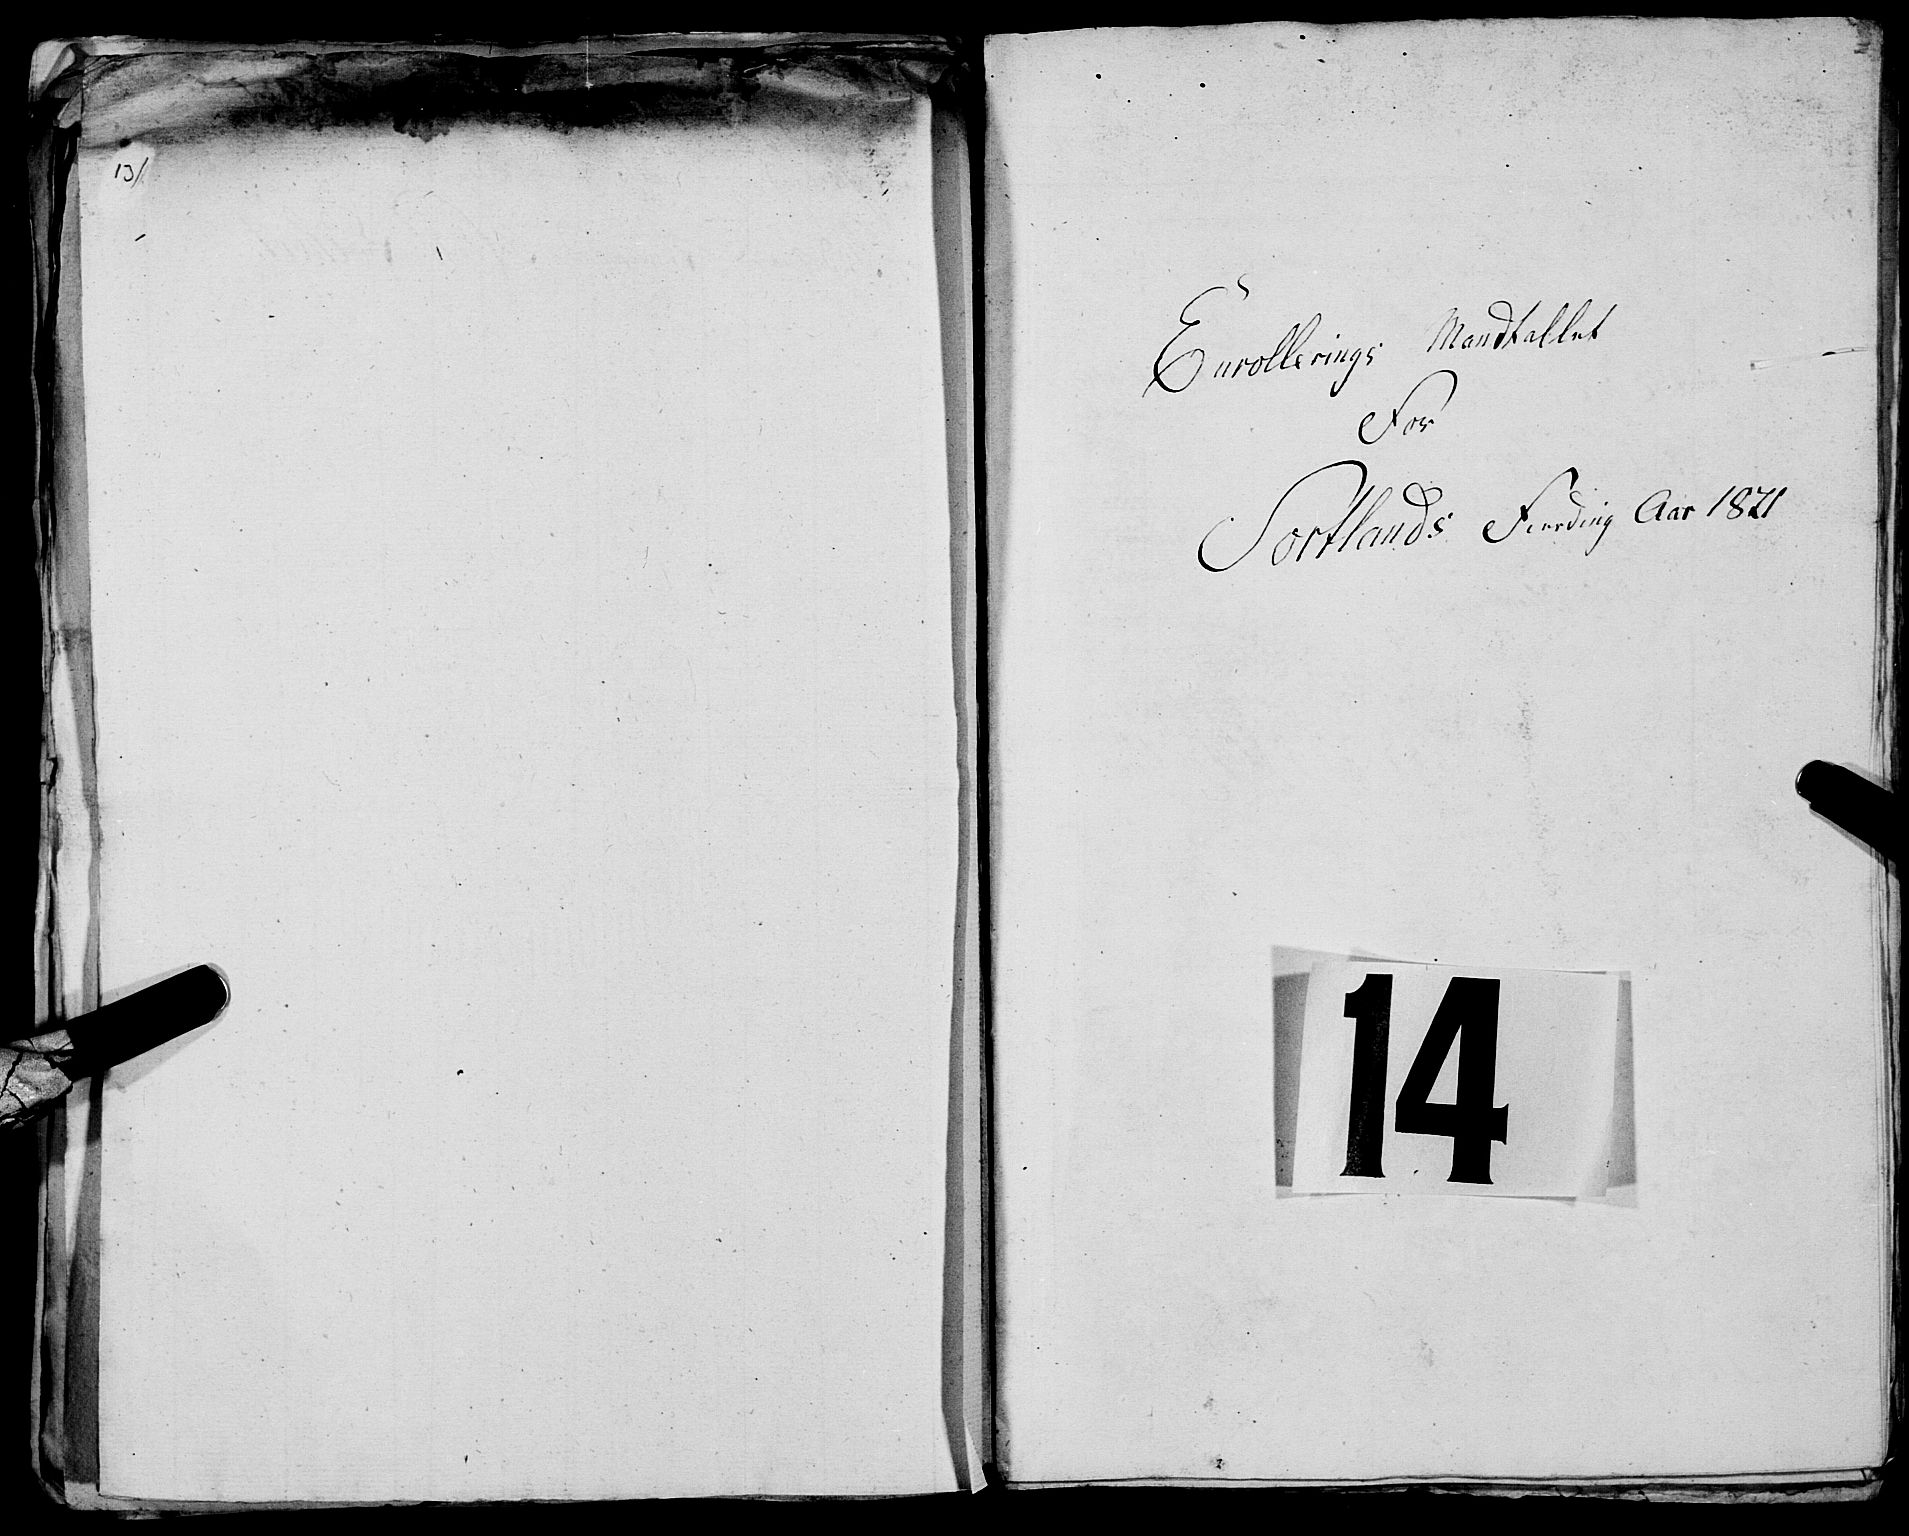 13/
Enrollerings Mandtallet
For
Sortlands Fierding Aar 1821
14